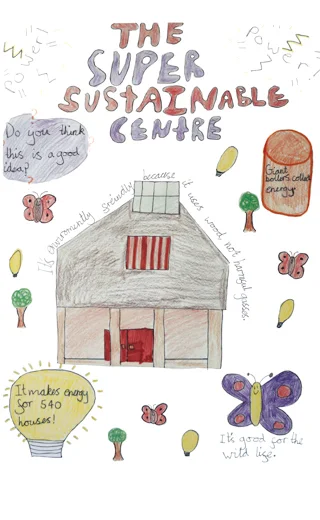 Power!
Power!
THE
SUPER
SUSTAINABLE
CENTRE
Do you think
this is a good
idea?
Giant
boilers collect
energy.
It's environmently freindly because it uses wood, not harmful gasses.
It makes energy
for 540
houses!
It's good for the
wild life.